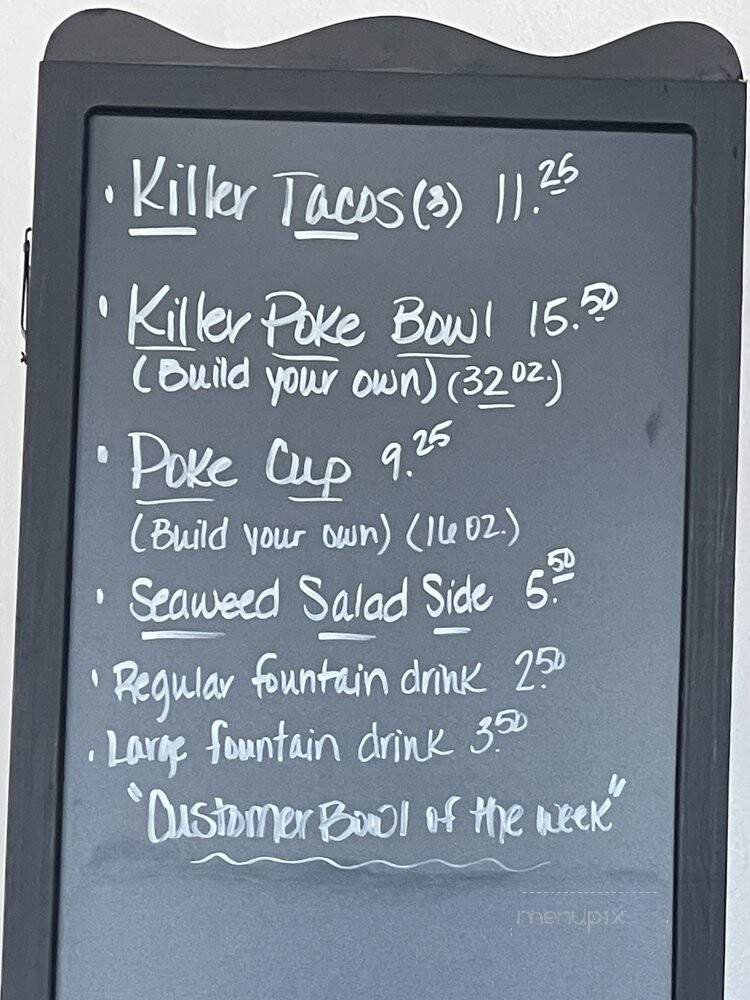 • Killer Tacos (3) 11.25
• Killer Poke Bowl 15.50
(Build your own) (32 oz.)
• Poke Cup 9.25
(Build your own) (16 oz.)
• Seaweed Salad Side 5.50
• Regular fountain drink 2.50
• Large fountain drink 3.50
"Customer Bowl of the week"
menupix